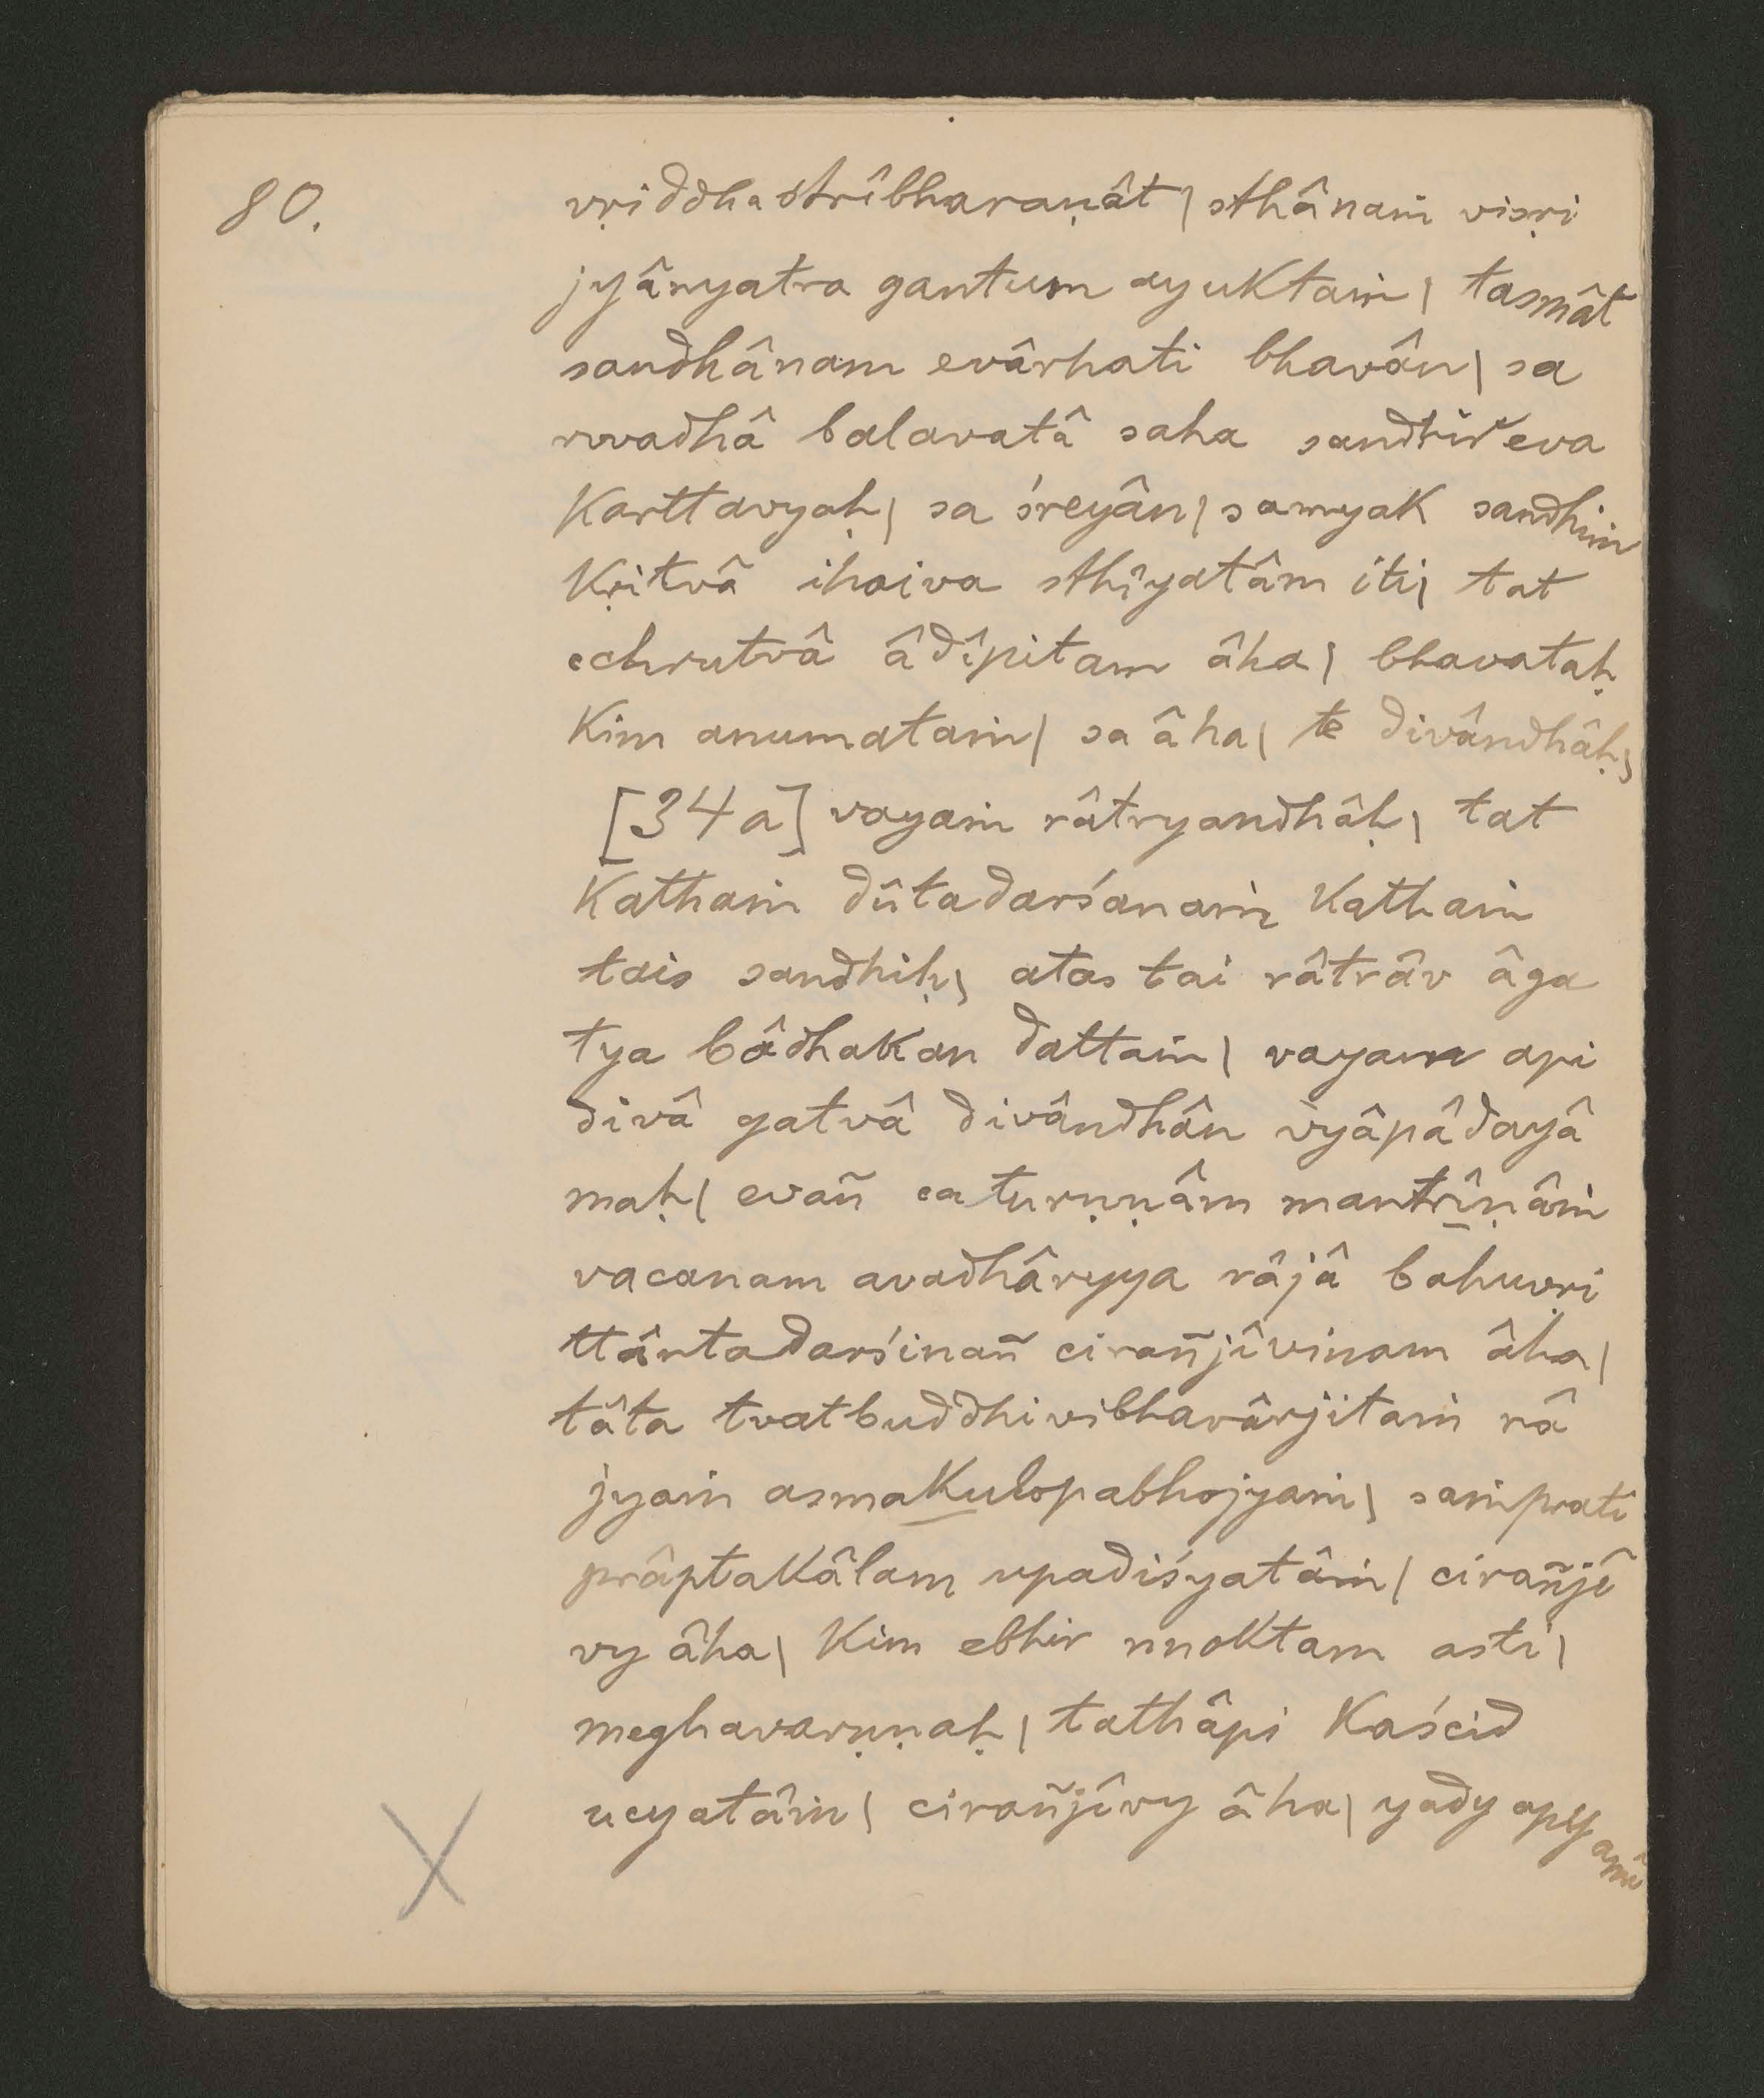 80.
vṛiddhastrîbharaṇât | sthânaṁ visṛi
jyânyatra gantum ayuktaṁ | tasmât
sandhânam evârhati bhavân | sa
rvvadhâ balavatâ saha sandhir eva
karttavyaḥ | sa śreyân | samyak sandhiṁ
kṛitvâ ihaiva sthîyatâm iti | tat
cchrutvâ âdîpitam âha | bhavataḥ
kim anumataṁ | sa âha | te divândhâḥ |
[34a] vayaṁ râtryandhâḥ | tat
kathaṁ dûtadarśanaṁ kathaṁ
tais sandhiḥ | atas tai râtrâv âga
tya bâdhakan dattaṁ | vayam api
divâ gatvâ divândhân vyâpâdayâ
maḥ | evañ caturṇṇâm mantrîṇâṁ
vacanam avadhâryya râjâ bahuvṛi
ttântadarśinañ cirañjîvinam âha |
tâta tvatbuddhivibhavârjitaṁ râ
jyaṁ asmakulopabhojyaṁ | saṁprati
prâptakâlam upadiśyatâṁ | cirañjî
vy âha | kim ebhir nnoktam asti |
meghavarṇṇaḥ | tathâpi kaścid
ucyatâṁ | cirañjîvy âha | yady apy amî